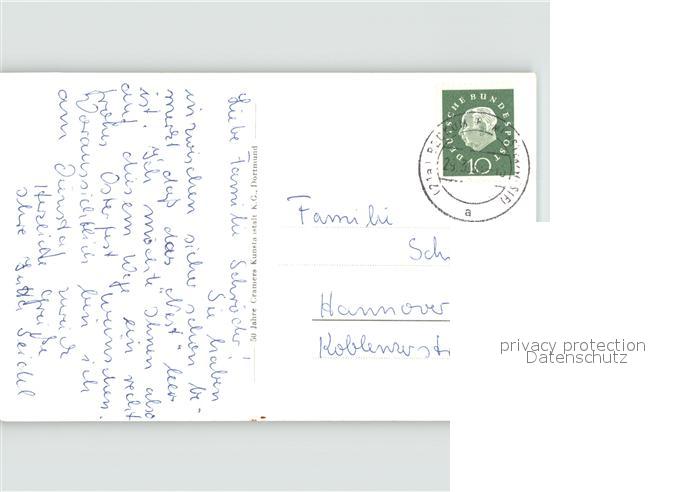 Liebe Familie Schröder!
Sie haben
inzwischen sicher schon be-
merkt daß das „Nest“ leer
ist. Ich möchte Ihnen also
auf diesem Wege ein recht
frohes Osterfest wünschen.
Voraussichtlich bin ich
am Dienstag zurück
Herzliche Grüße
Ihre Jutta Seidel
50 Jahre Cramers Kunstanstalt K.G., Dortmund
DEUTSCHE BUNDESPOST
10
a
Familie
Sch
Hannover
Koblenzerstr
privacy protection
Datenschutz